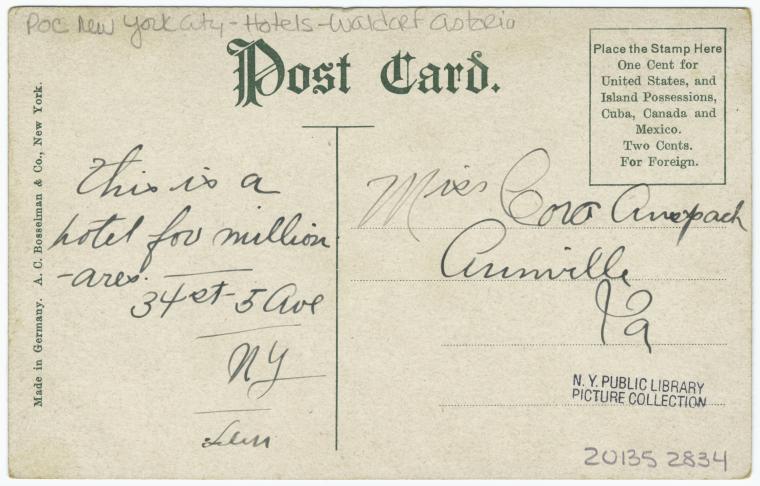 POC New York City - Hotels - Waldorf Astoria
Post Card.
Place the Stamp Here
One Cent for
United States, and
Island Possessions,
Cuba, Canada and
Mexico.
Two Cents.
For Foreign.
Made in Germany. A. C. Bosselman & Co., New York.
This is a
hotel for million
-ares.
34st - 5 Ave
NY
Miss Cora Anspach
Annville
Pa
N. Y. PUBLIC LIBRARY
PICTURE COLLECTION
20135 2834